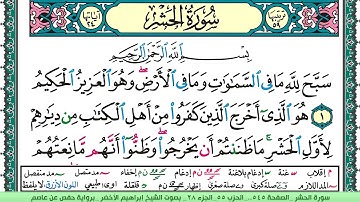 سُورَةُ الْحَشْرِ
بِسْمِ اللَّهِ الرَّحْمَٰنِ الرَّحِيمِ
سَبَّحَ لِلَّهِ مَا فِي السَّمَاوَاتِ وَمَا فِي الْأَرْضِ وَهُوَ الْعَزِيزُ الْحَكِيمُ
١ هُوَ الَّذِي أَخْرَجَ الَّذِينَ كَفَرُوا مِنْ أَهْلِ الْكِتَابِ مِن دِيَارِهِمْ
لِأَوَّلِ الْحَشْرِ مَا ظَنَنتُمْ أَن يَخْرُجُوا وَظَنُّوا أَنَّهُم مَّانِعَتُهُمْ
سورة الحشر. الصفحة ٥٤٥. الحزب ٥٥. الجزء ٢٨. بصوت الشيخ ابراهيم الأخضر. رواية حفص عن عاصم